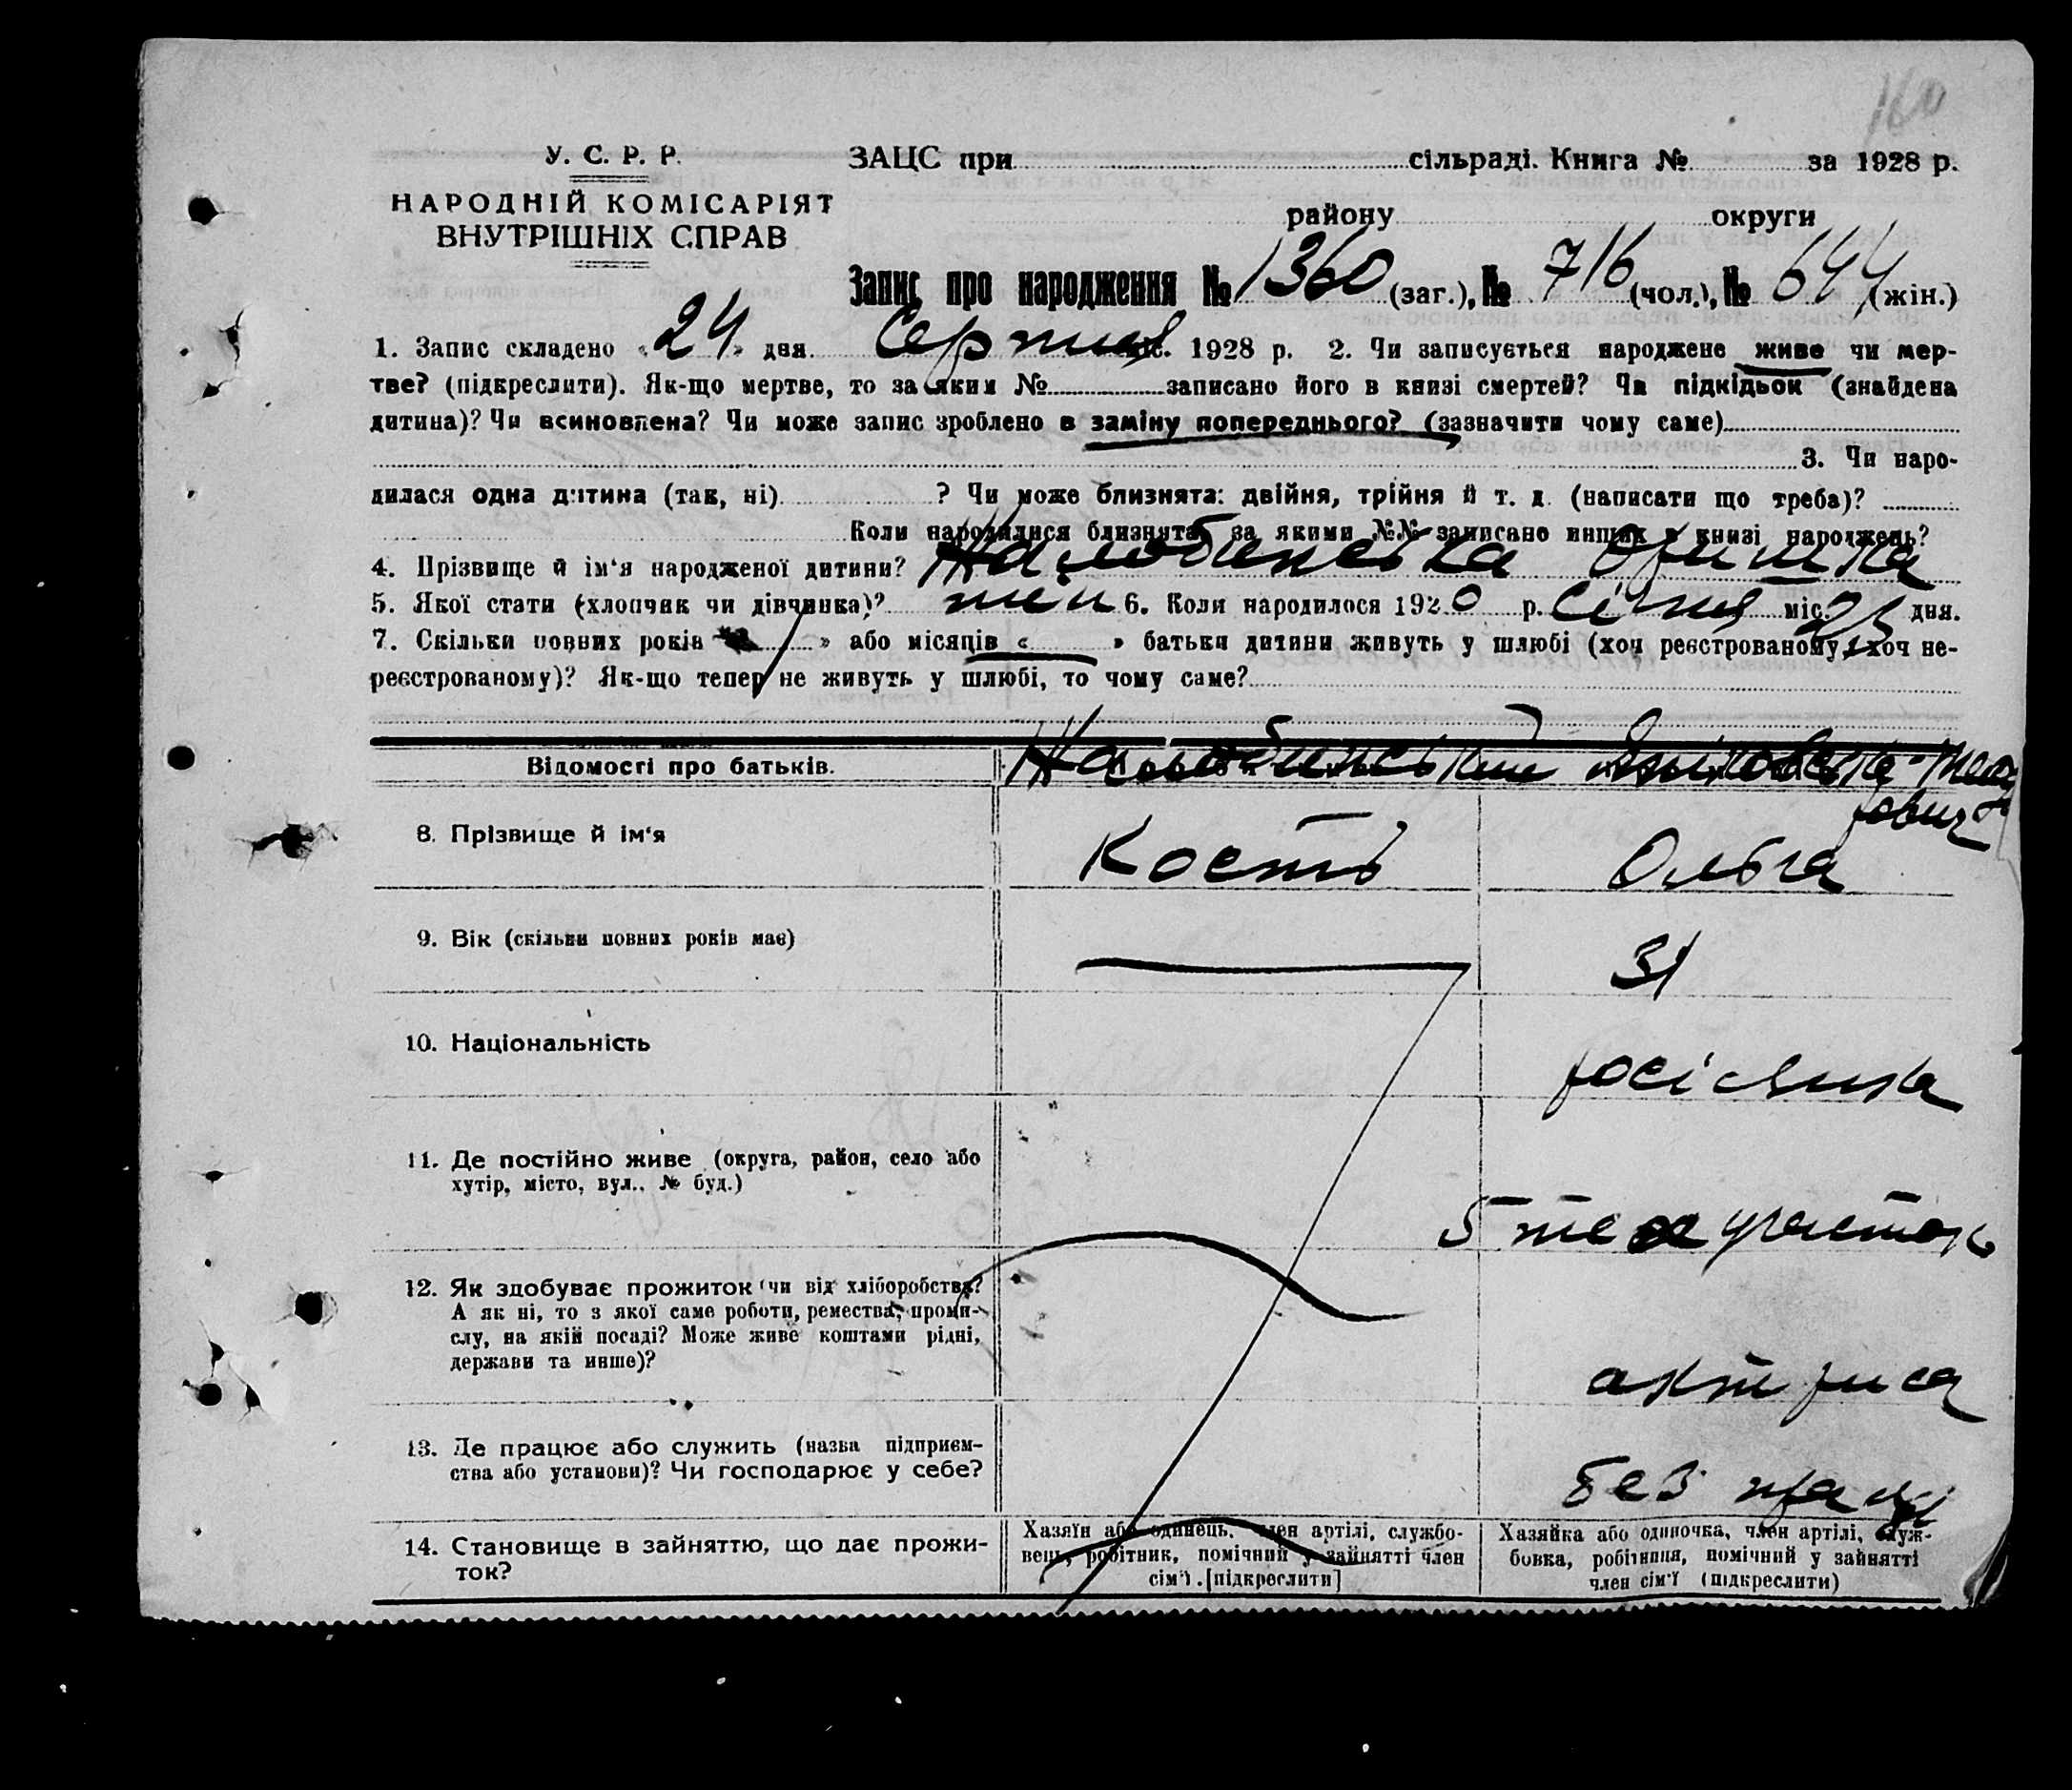 160
У. С. Р. Р.
НАРОДНІЙ КОМІСАРІЯТ
ВНУТРІШНІХ СПРАВ
ЗАЦС при сільраді. Книга № за 1928 р.
району округи
Запис про народження № 1360 (заг.), № 716 (чол.), № 644 (жін.)
1. Запис складено « 24 » дня Серпня міс. 1928 р. 2. Чи записується народжене живе чи мер-
тве? (підкреслити). Як-що мертве, то за яким № записано його в книзі смертей? Чи підкідьок (знайдена
дитина)? Чи всиновлена? Чи може запис зроблено в заміну попереднього? (зазначити чому саме)
3. Чи наро-
дилася одна дитина (так, ні) ? Чи може близнята: двійня, трійня й т. д. (написати що треба)?
Коли народилися близнята, за якими №№ записано инших в книзі народжень?
4. Прізвище й ім'я народженої дитини? Жалобинська Оришка
5. Якої стати (хлопчик чи дівчинка)? жін 6. Коли народилося 1920 р. Січня міс. 25 дня.
7. Скільки повних років « » або місяців « » батьки дитини живуть у шлюбі (хоч реєстрованому, хоч не-
реєстрованому)? Як-що тепер не живуть у шлюбі, то чому саме?
Відомості про батьків.
8. Прізвище й ім'я
Кость Ольга
9. Вік (скільки повних років має)
31
10. Національність
росіянка
11. Де постійно живе (округа, район, село або
хутір, місто, вул., № буд.)
5 участок
12. Як здобуває прожиток (чи від хліборобства?
А як ні, то з якої саме роботи, ремества, проми-
слу, на якій посаді? Може живе коштами рідні,
держави та инше)?
актриса
13. Де працює або служить (назва підприєм-
ства або установи)? Чи господарює у себе?
без праці
14. Становище в зайняттю, що дає прожи-
ток?
Хазяїн або одинець, член артілі, службо-
вець, робітник, помічний у зайнятті член
сім'ї. [підкреслити]
Хазяйка або одиночка, член артілі, служ-
бовка, робітниця, помічний у зайнятті
член сім'ї (підкреслити)